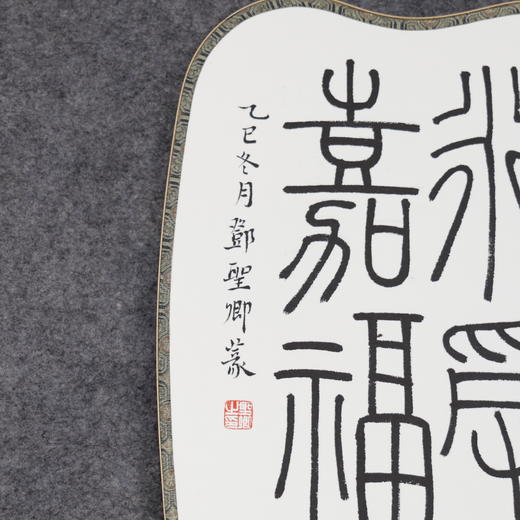 永受
嘉福
乙巳冬月鄧聖卿篆